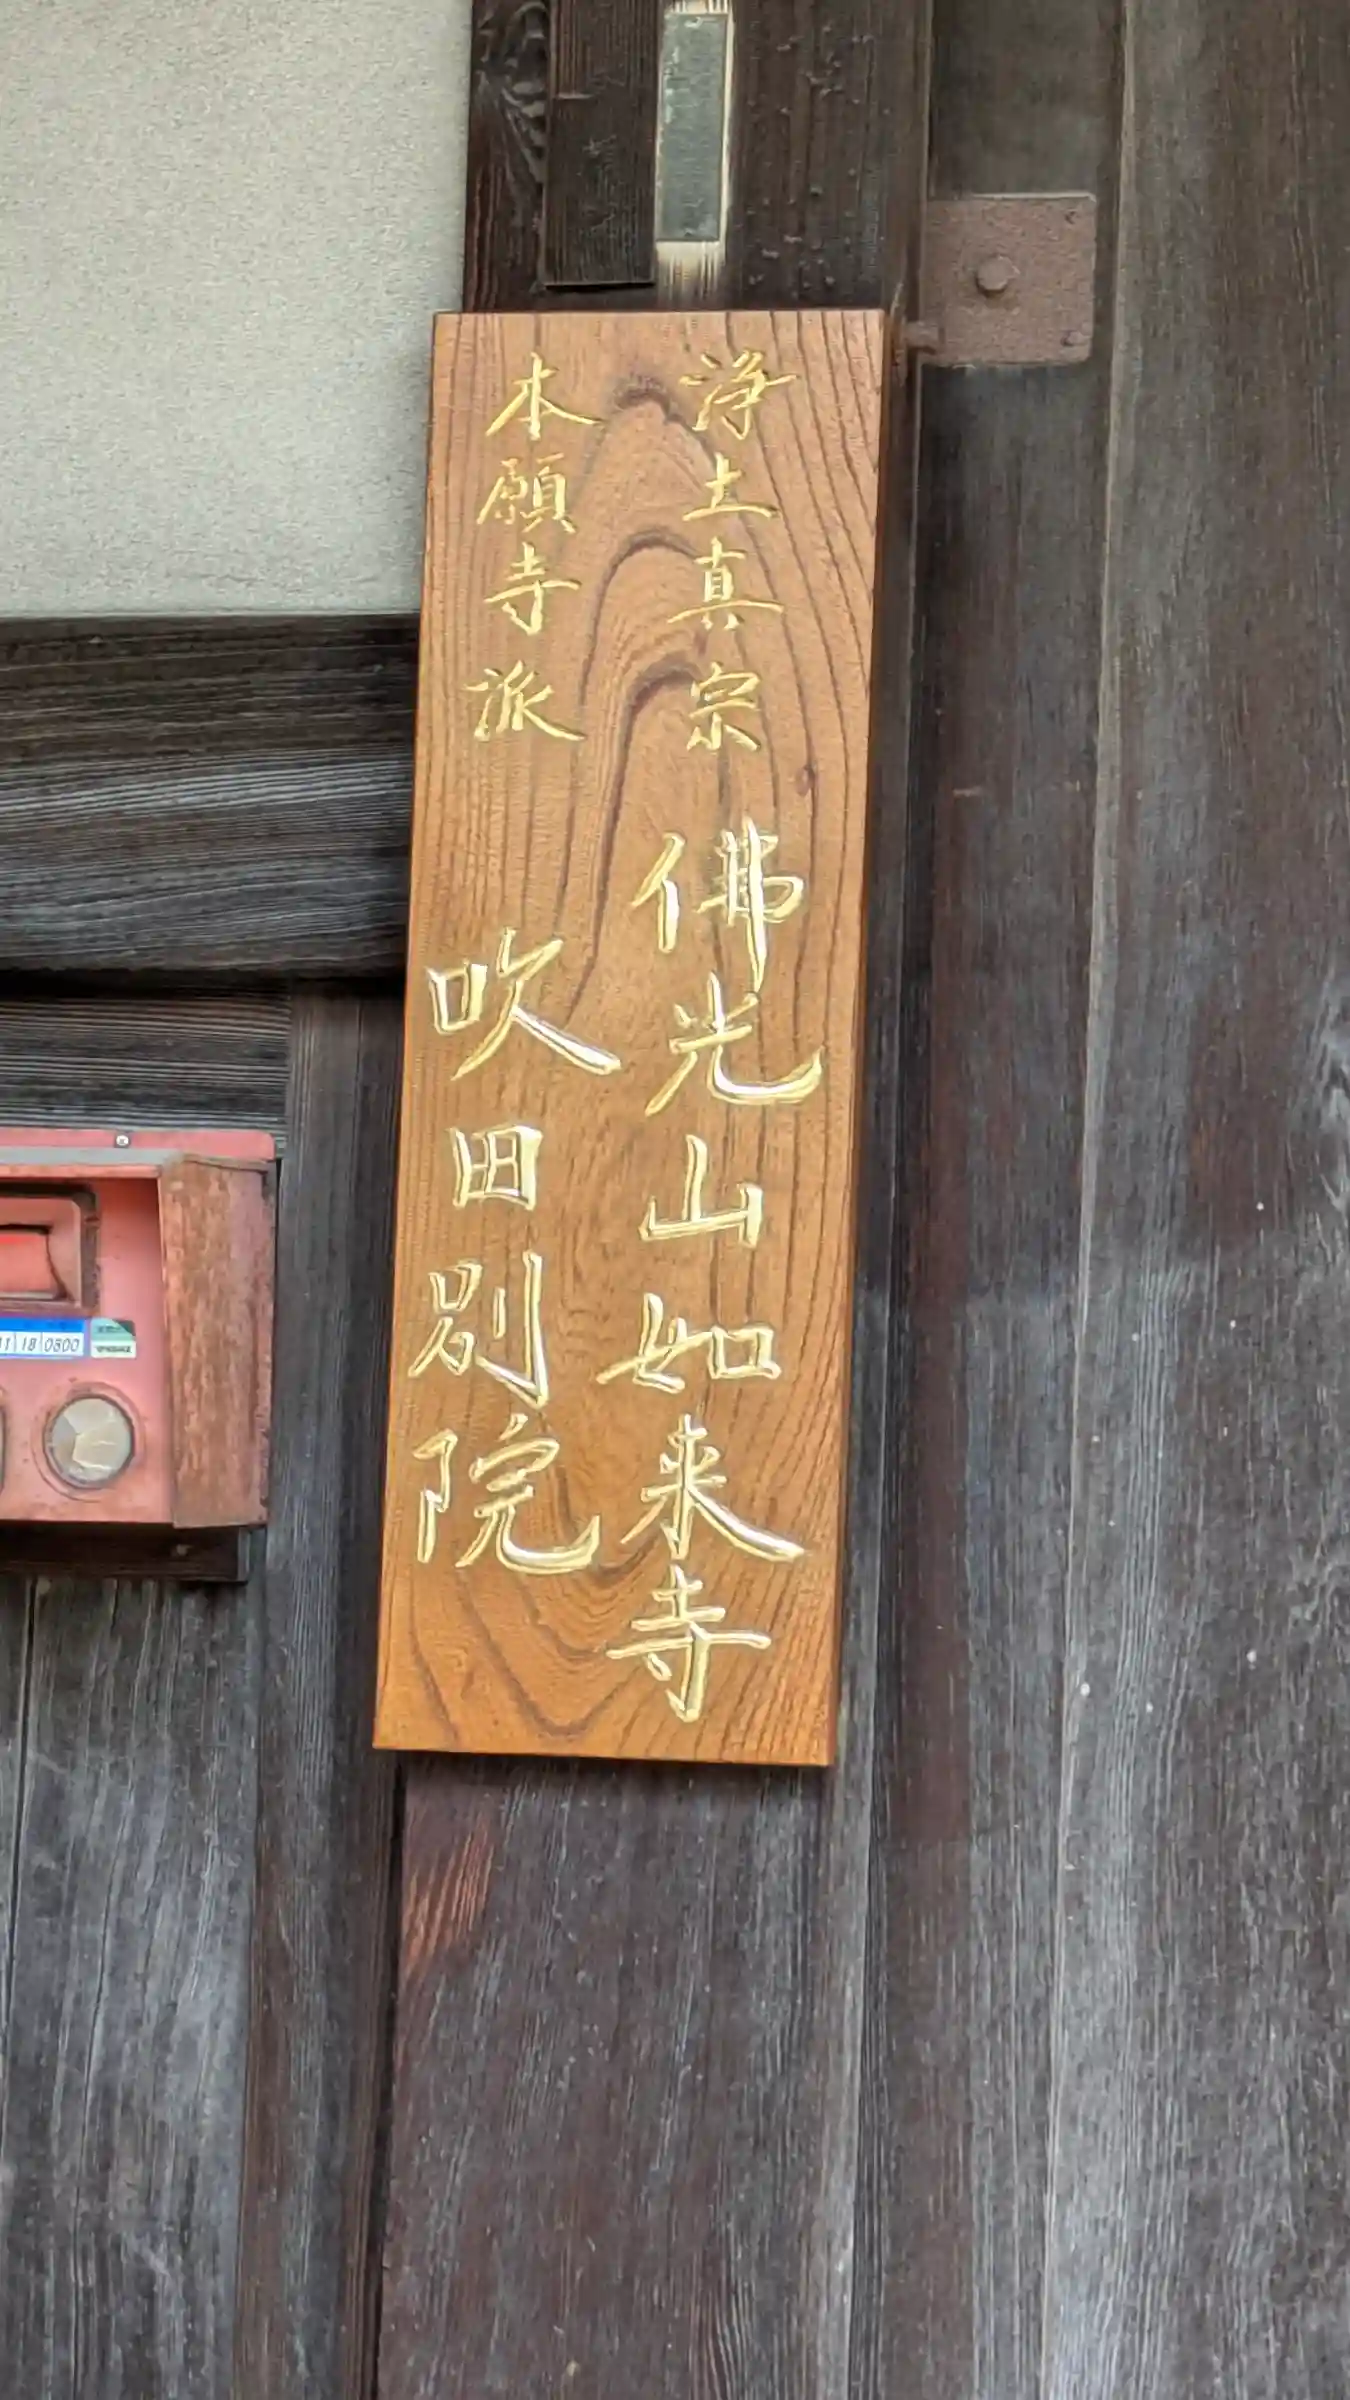 浄土真宗 佛光山如来寺
本願寺派 吹田別院
18 0800